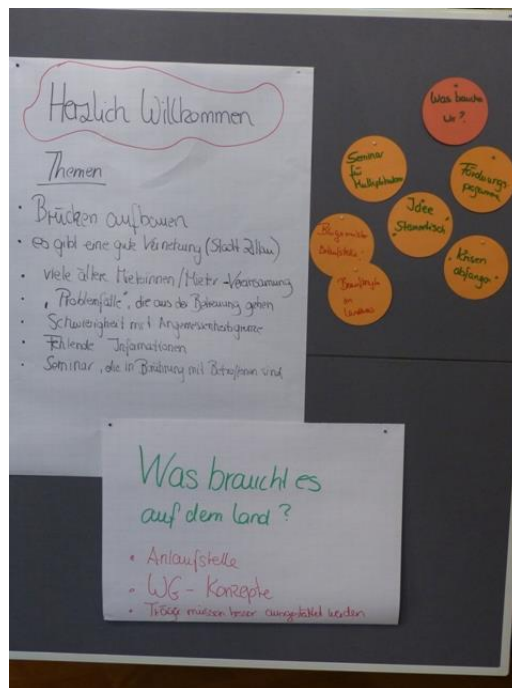 Herzlich Willkommen
Themen
• Brücken aufbauen
• es gibt eine gute Vernetzung (Stadt Zittau)
• viele ältere Mieterinnen/Mieter - Vereinsamung
• "Problemfälle", die aus der Betreuung gehen
• Schwierigkeit mit Angemessenheitsgrenze
• Fehlende Informationen
• Seminar, die in Berührung mit Betroffenen sind
Was brauchen
wir?
Seminar
für
Multiplikatoren
Förderungs
programm
Idee
Stammtisch
Bürgermeister
Krisen
abfangen
im
Landkreis
Was braucht es
auf dem Land?
• Anlaufstelle
• WG - Konzepte
• Träger müssen besser ausgestattet werden